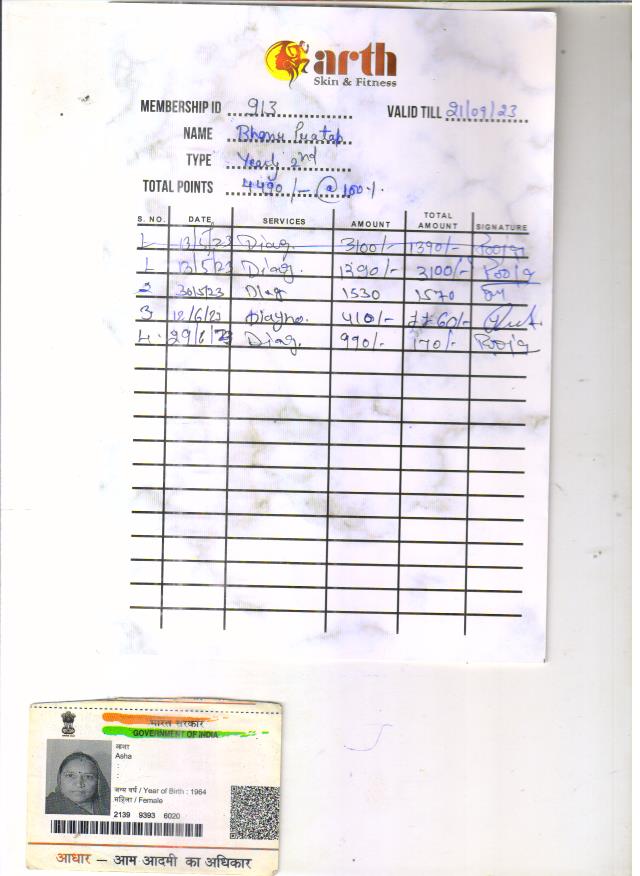 arth
Skin & Fitness
MEMBERSHIP ID 913 VALID TILL 21/09/23
NAME Bhanu Pratap
TYPE Yearly 2nd
TOTAL POINTS 4490/- @ 100%.
S. NO. DATE SERVICES AMOUNT TOTAL AMOUNT SIGNATURE
1. 13/5/23 Diag. 3100/- 1390/-
1. 13/5/23 Diag. 1390/- 3100/-
2 30/5/23 Diag 1530 1570
3 12/6/23 Diagno. 410/- 1160/-
4. 29/6/23 Diag. 990/- 170/-
भारत सरकार
GOVERNMENT OF INDIA
आशा
Asha
जन्म वर्ष / Year of Birth : 1964
महिला / Female
2139 9393 6020
आधार – आम आदमी का अधिकार